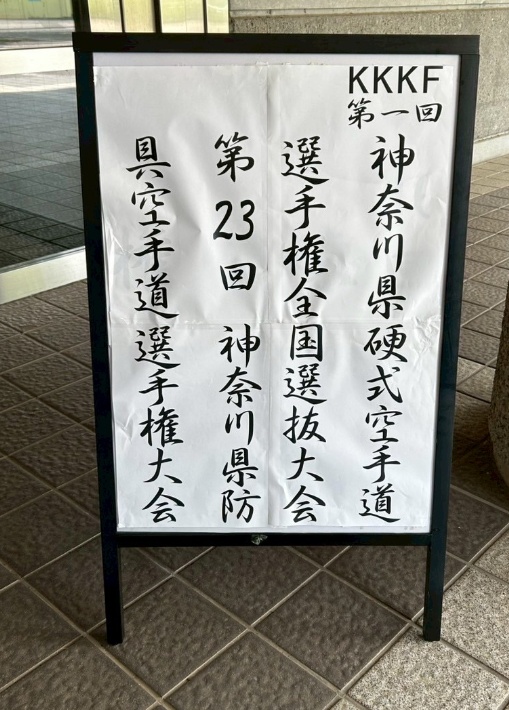 KKKF
第一回
神奈川県硬式空手道
選手権全国選抜大会
第23回 神奈川県防
具空手道選手権大会